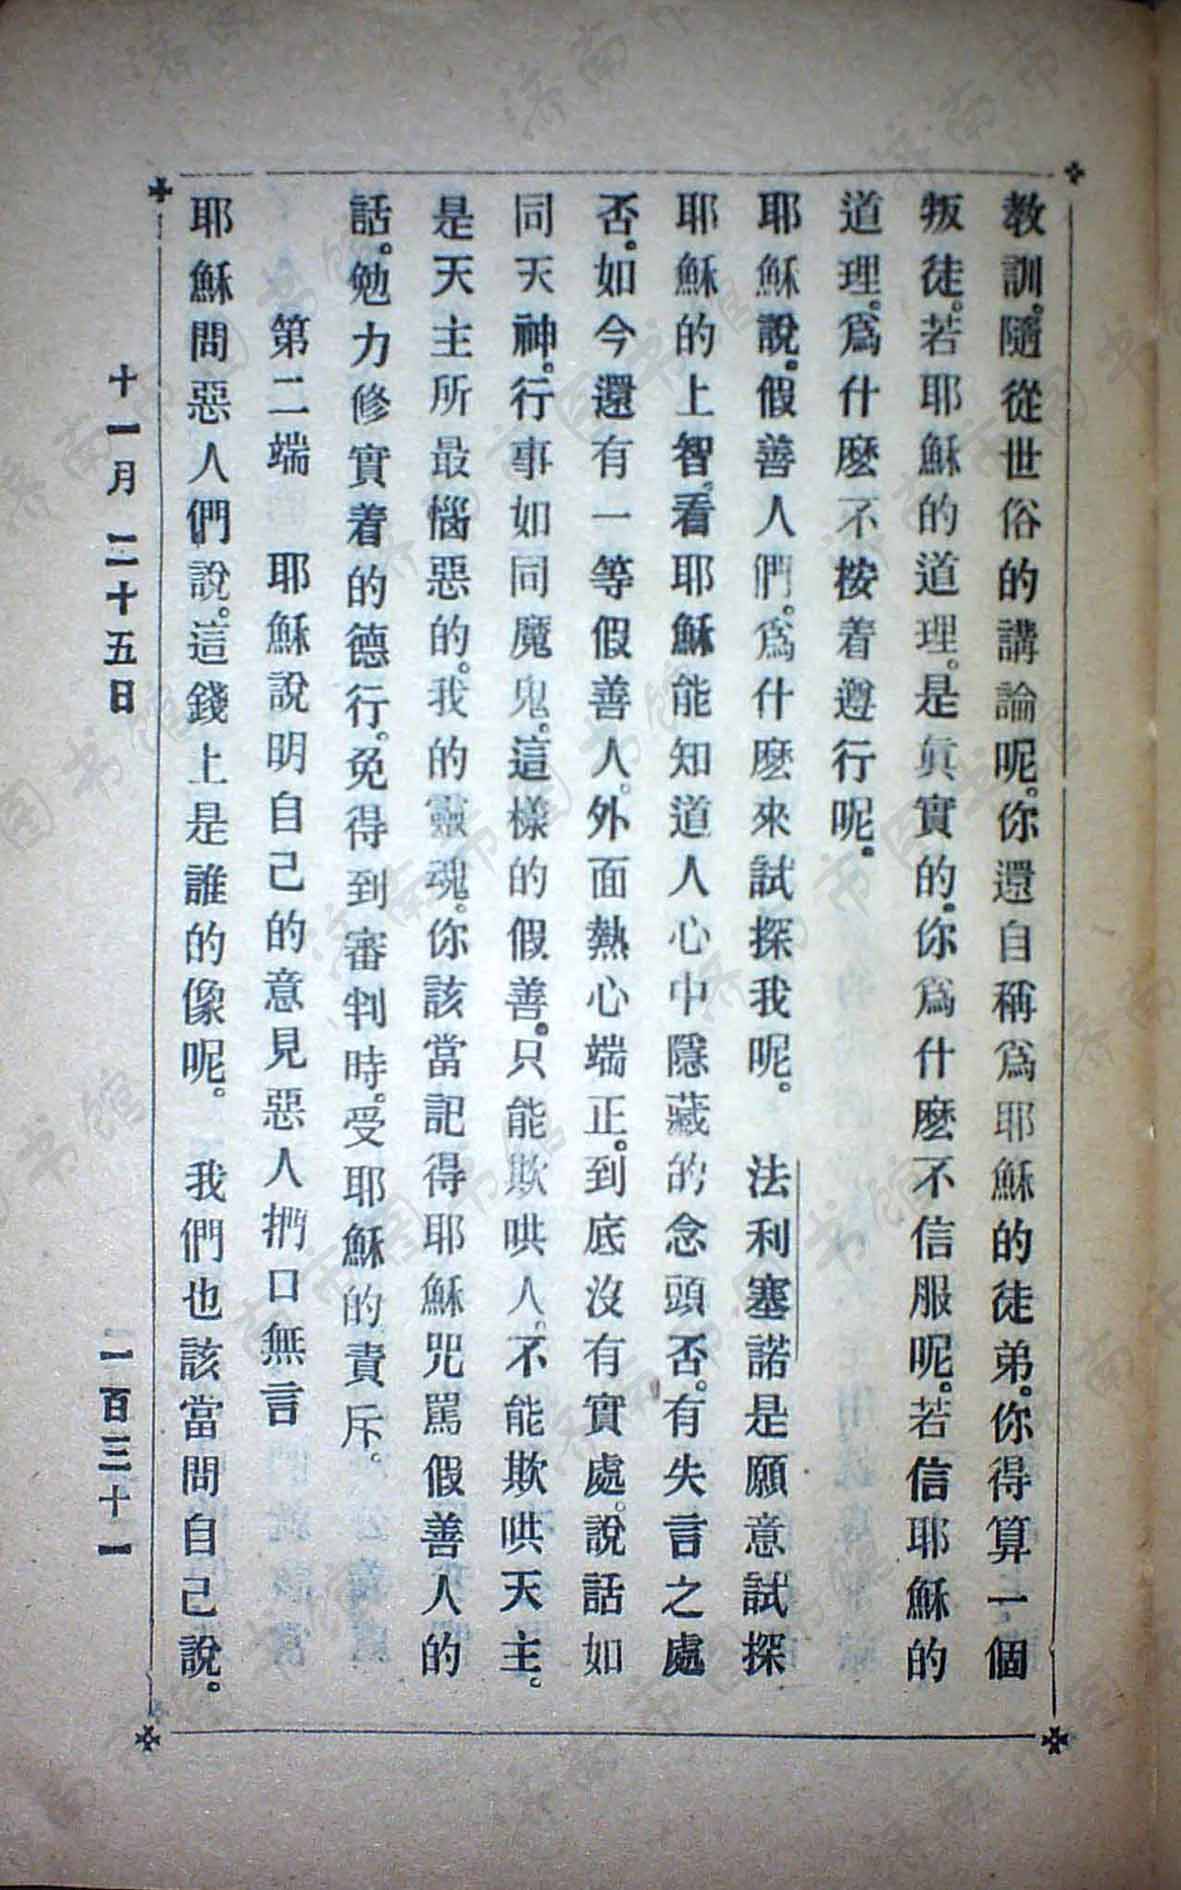 教訓。隨從世俗的講論呢。你還自稱爲耶穌的徒弟。你得算一個
叛徒。若耶穌的道理。是眞實的。你爲什麽不信服呢。若信耶穌的
道理。爲什麽不按着遵行呢。
耶穌說。假善人們。爲什麽來試探我呢。　法利塞諾是願意試探
耶穌的上智。看耶穌能知道人心中隱藏的念頭否。有失言之處
否。如今還有一等假善人。外面熱心端正。到底沒有實處。說話如
同天神。行事如同魔鬼。這樣的假善。只能欺哄人。不能欺哄天主。
是天主所最惱惡的。我的靈魂。你該當記得耶穌咒罵假善人的
話。勉力修實着的德行。免得到審判時。受耶穌的責斥。
第二端　耶穌說明自己的意見惡人捫口無言
耶穌問惡人們說。這錢上是誰的像呢。　我們也該當問自己說。
十一月二十五日　一百三十一
濟南市图书馆